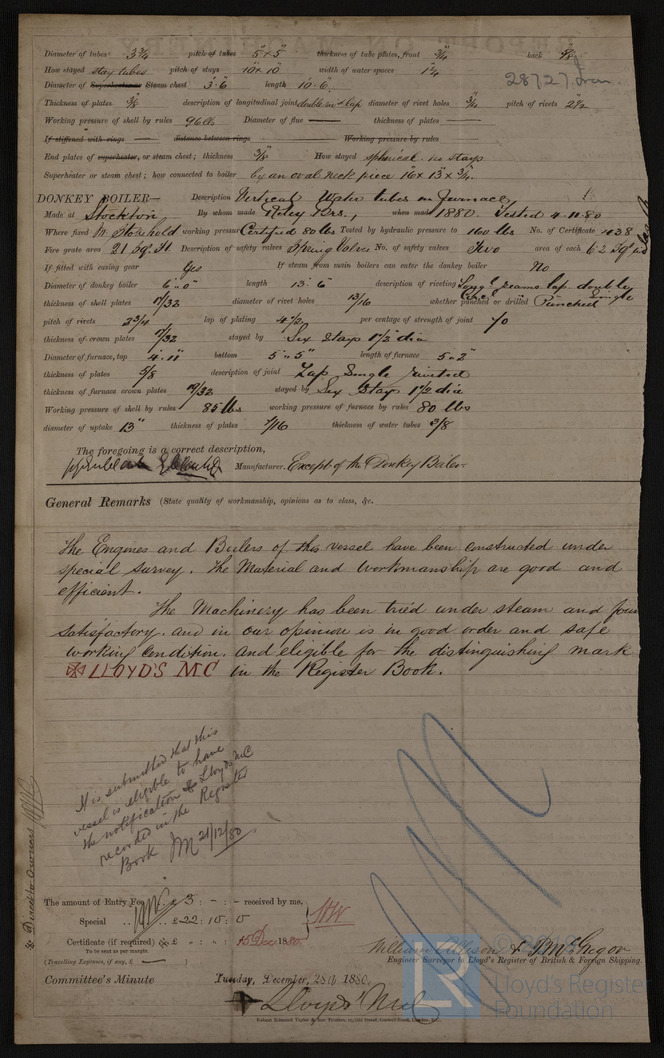 Diameter of tubes 3 3/4 pitch of tubes 5" x 5" thickness of tube plates, front 3/4" back
How stayed stay tubes pitch of stays 10" x 10" width of water spaces 1 1/4
28727 Iron
Diameter of Superheater or Steam chest 3'.6" length 10'.6"
Thickness of plates 3/8" description of longitudinal joint double riv'd lap diameter of rivet holes 3/4" pitch of rivets 2 1/2
Working pressure of shell by rules 96 lbs Diameter of flue — thickness of plates —
If stiffened with rings — distance between rings — Working pressure by rules
End plates of superheater, or steam chest; thickness 3/8" How stayed spherical no stays
Superheater or steam chest; how connected to boiler by an oval neck piece 16" x 13" x 3/4"
DONKEY BOILER— Description Vertical Water tubes in furnace,
Made at Stockton By whom made Riley Bros., when made 1880. Tested 4.11.80
Where fixed In Stokehold working pressure Certified 80 lbs Tested by hydraulic pressure to 160 lbs No. of Certificate 1038
Fire grate area 21 Sq. ft Description of safety valves Spring Valves No. of safety valves Two area of each 6.2 Sq in
If fitted with easing gear Yes If steam from main boilers can enter the donkey boiler No
Diameter of donkey boiler 6'.0" length 13'.6" description of riveting Long'l seams lap doubly Circ. single
thickness of shell plates 17/32 diameter of rivet holes 13/16 whether punched or drilled Punched
pitch of rivets 2 3/4 lap of plating 4 1/2 per centage of strength of joint 70
thickness of crown plates 17/32 stayed by Six Stays 1 1/2 dia
Diameter of furnace, top 4'.11" bottom 5'.5" length of furnace 5'.2"
thickness of plates 5/8 description of joint Lap Single riveted
thickness of furnace crown plates 19/32 stayed by Six Stays 1 1/2 dia
Working pressure of shell by rules 85 lbs working pressure of furnace by rules 80 lbs
diameter of uptake 13" thickness of plates 7/16 thickness of water tubes 3/8
The foregoing is a correct description,
Manufacturer. Except of the Donkey Boiler
General Remarks (State quality of workmanship, opinions as to class, &c.
The Engines and Boilers of this vessel have been constructed under
special survey. The Material and workmanship are good and
efficient.
The Machinery has been tried under steam and foun
satisfactory. and in our opinion is in good order and safe
working condition. and eligible for the distinguishing mark
LLOYD'S M.C in the Register Book.
It is submitted that this
vessel is eligible to have
the notification Lloyds MC
recorded in the Register
Book JM 21/12/80
The amount of Entry Fee £ 3 : - : - received by me,
Special .. £ 22 : 10 : 0
Certificate (if required) £ " : " : 15 Dec 1880
To be sent as per margin.
(Travelling Expenses, if any, £ — )
William Allison & J. McGregor
Engineer Surveyor to Lloyd's Register of British & Foreign Shipping.
Committee's Minute Tuesday, December, 28th 1880.
Lloyds M.C.
LR
Lloyd's Register
Foundation